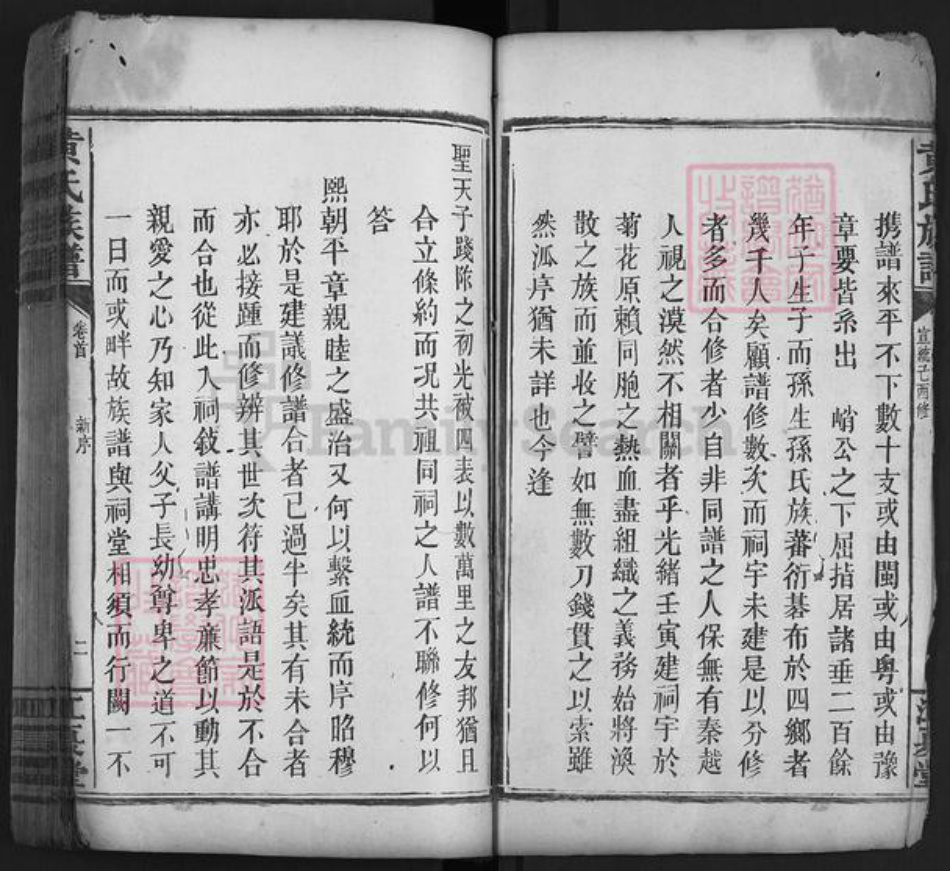 黃氏族譜
宣統己酉修
江夏堂
携譜來平不下數十支或由閩或由粤或由豫
章要皆系出　峭公之下屈指居諸垂二百餘
年子生子而孫生孫氏族蕃衍碁布於四鄉者
幾千人矣顧譜修數次而祠宇未建是以分修
者多而合修者少自非同譜之人保無有秦越
人視之漠然不相關者乎光緒壬寅建祠宇於
菊花原賴同胞之熱血盡組織之義務始將渙
散之族而並收之譬如無數刀錢貫之以索雖
然派序猶未詳也今逢
聖天子踐阼之初光被四表以數萬里之友邦猶且
合立條約而况共祖同祠之人譜不聯修何以
答
熙朝平章親睦之盛治又何以繫血統而序昭穆
耶於是建議修譜合者已過半矣其有未合者
亦必接踵而修辨其世次符其派語是於不合
而合也從此入祠敍譜講明忠孝廉節以動其
親愛之心乃知家人父子長幼尊卑之道不可
一日而或畔故族譜與祠堂相須而行闕一不
黃氏族譜
卷首
新序
二
江夏堂
FamilySearch